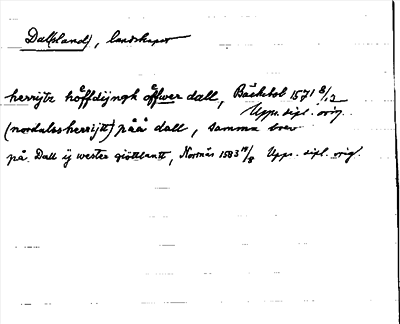 Dal(sland), landskapet
herrijtz höffdijngh åffwer dall, Bäckebol 1571 8/12
Upps. dipl. orig.
(nordalssherrijtt) påå dall, samma brev
på Dall ij wester giöttlantt, Normås 1583 19/8 Upps. dipl. orig.